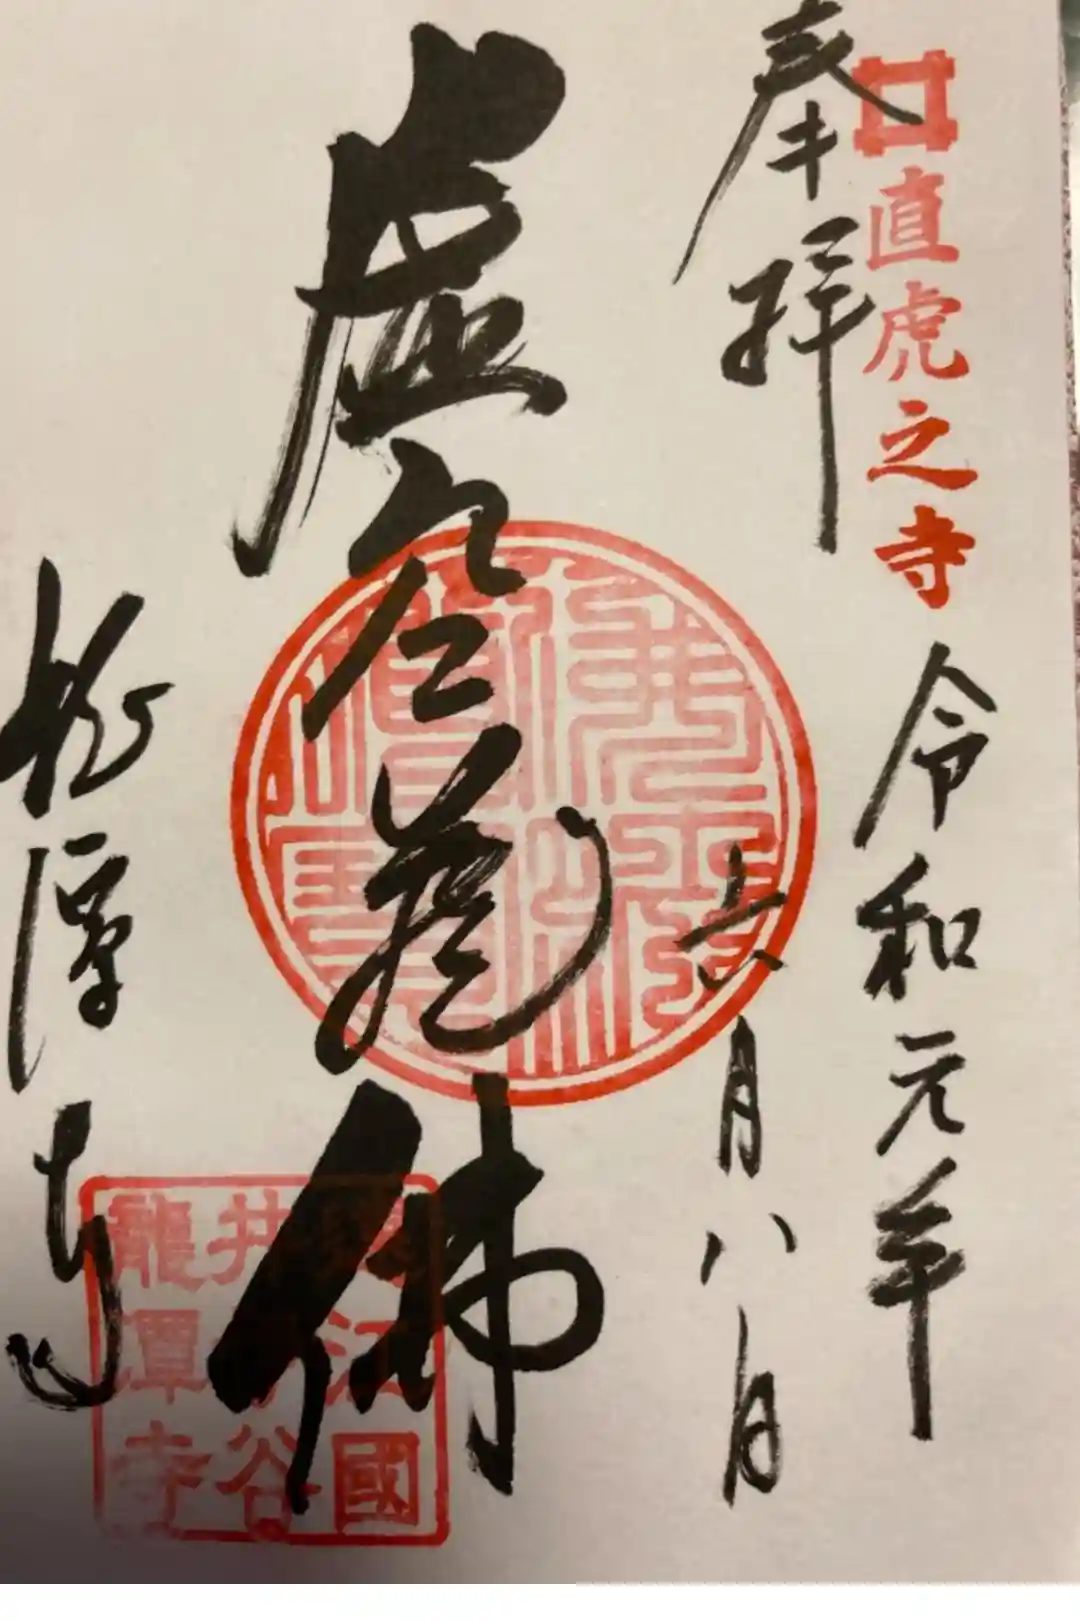 直虎之寺
奉拝
令和元年
六月八日
虚空蔵佛
龍潭寺
遠江國
井伊谷
龍潭寺